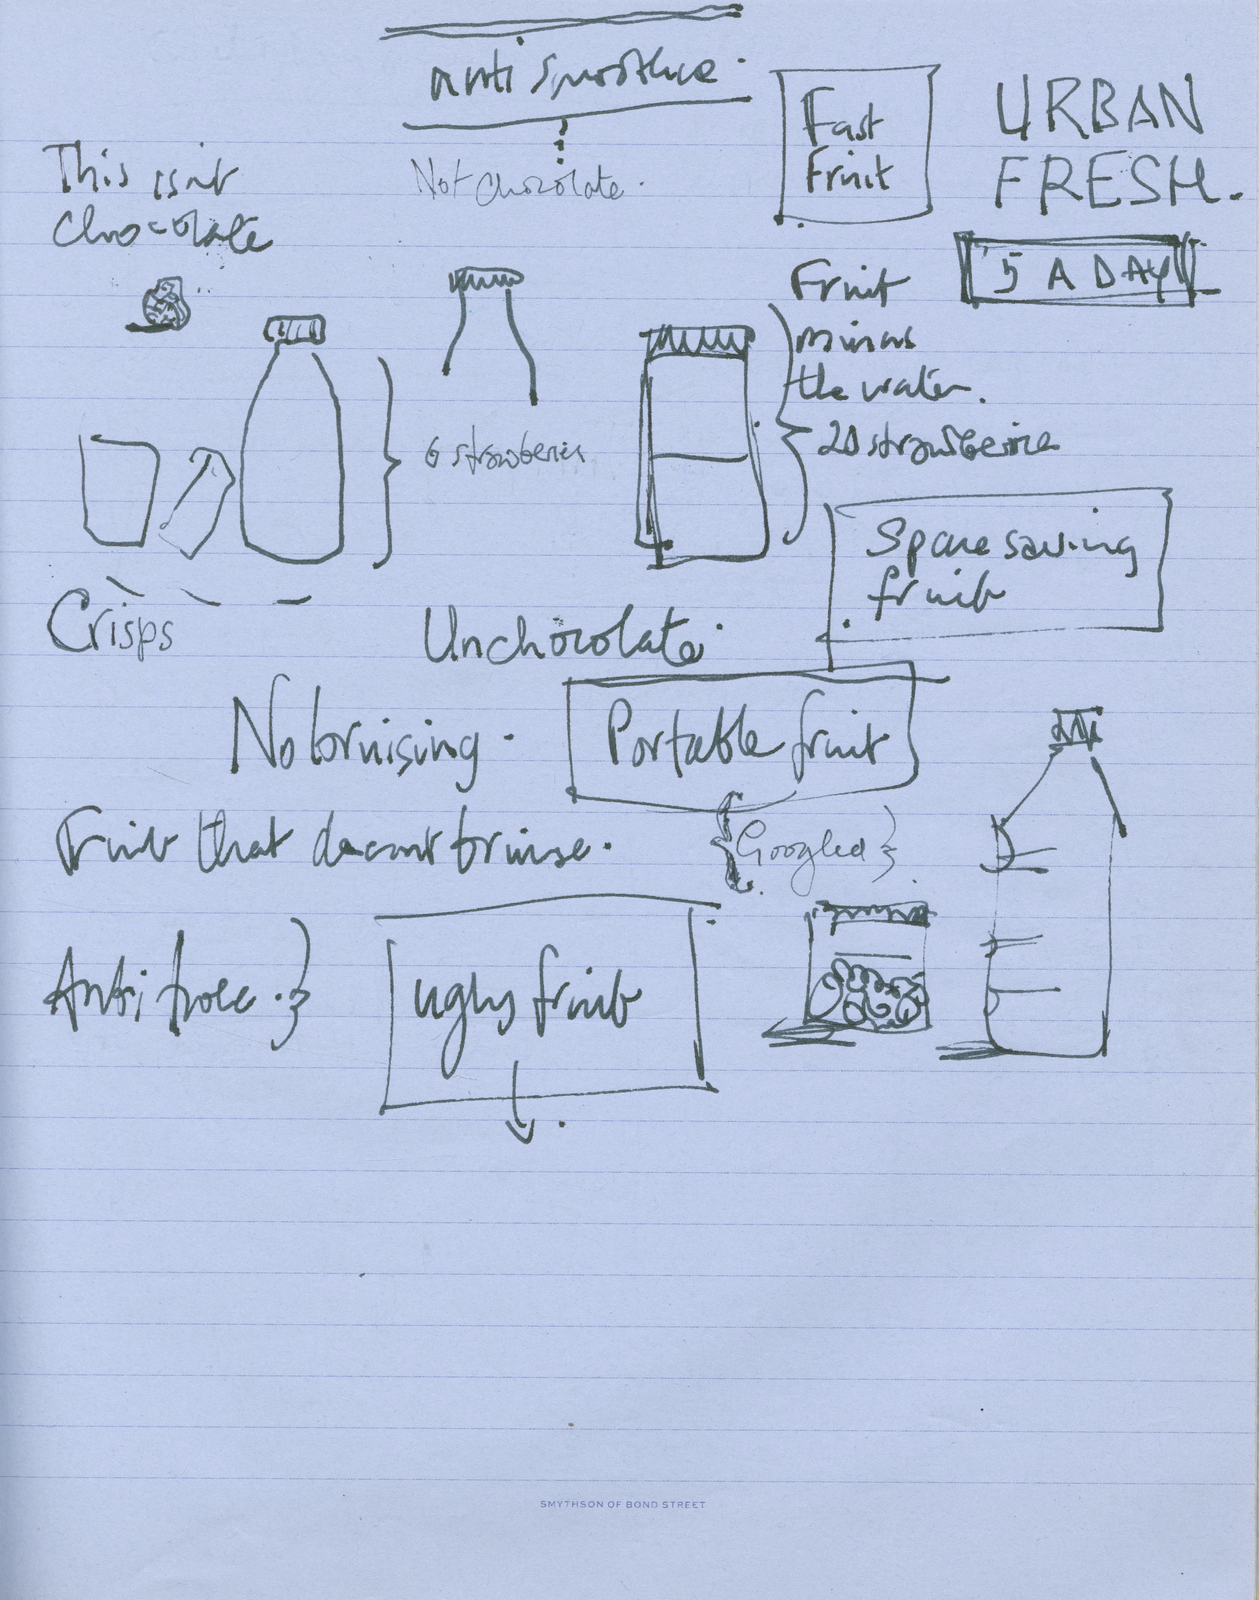 anti smoothie.
Not chocolate.
Fast
Fruit
URBAN
FRESH.
5 A DAY
This isn't
chocolate
Fruit
minus
the water.
20 strawberries
6 strawberries
Space saving
fruit
Crisps
Unchocolate.
No bruising.
Portable fruit
Fruit that doesnt bruise.
{Googled}
Anti
ugly fruit
SMYTHSON OF BOND STREET